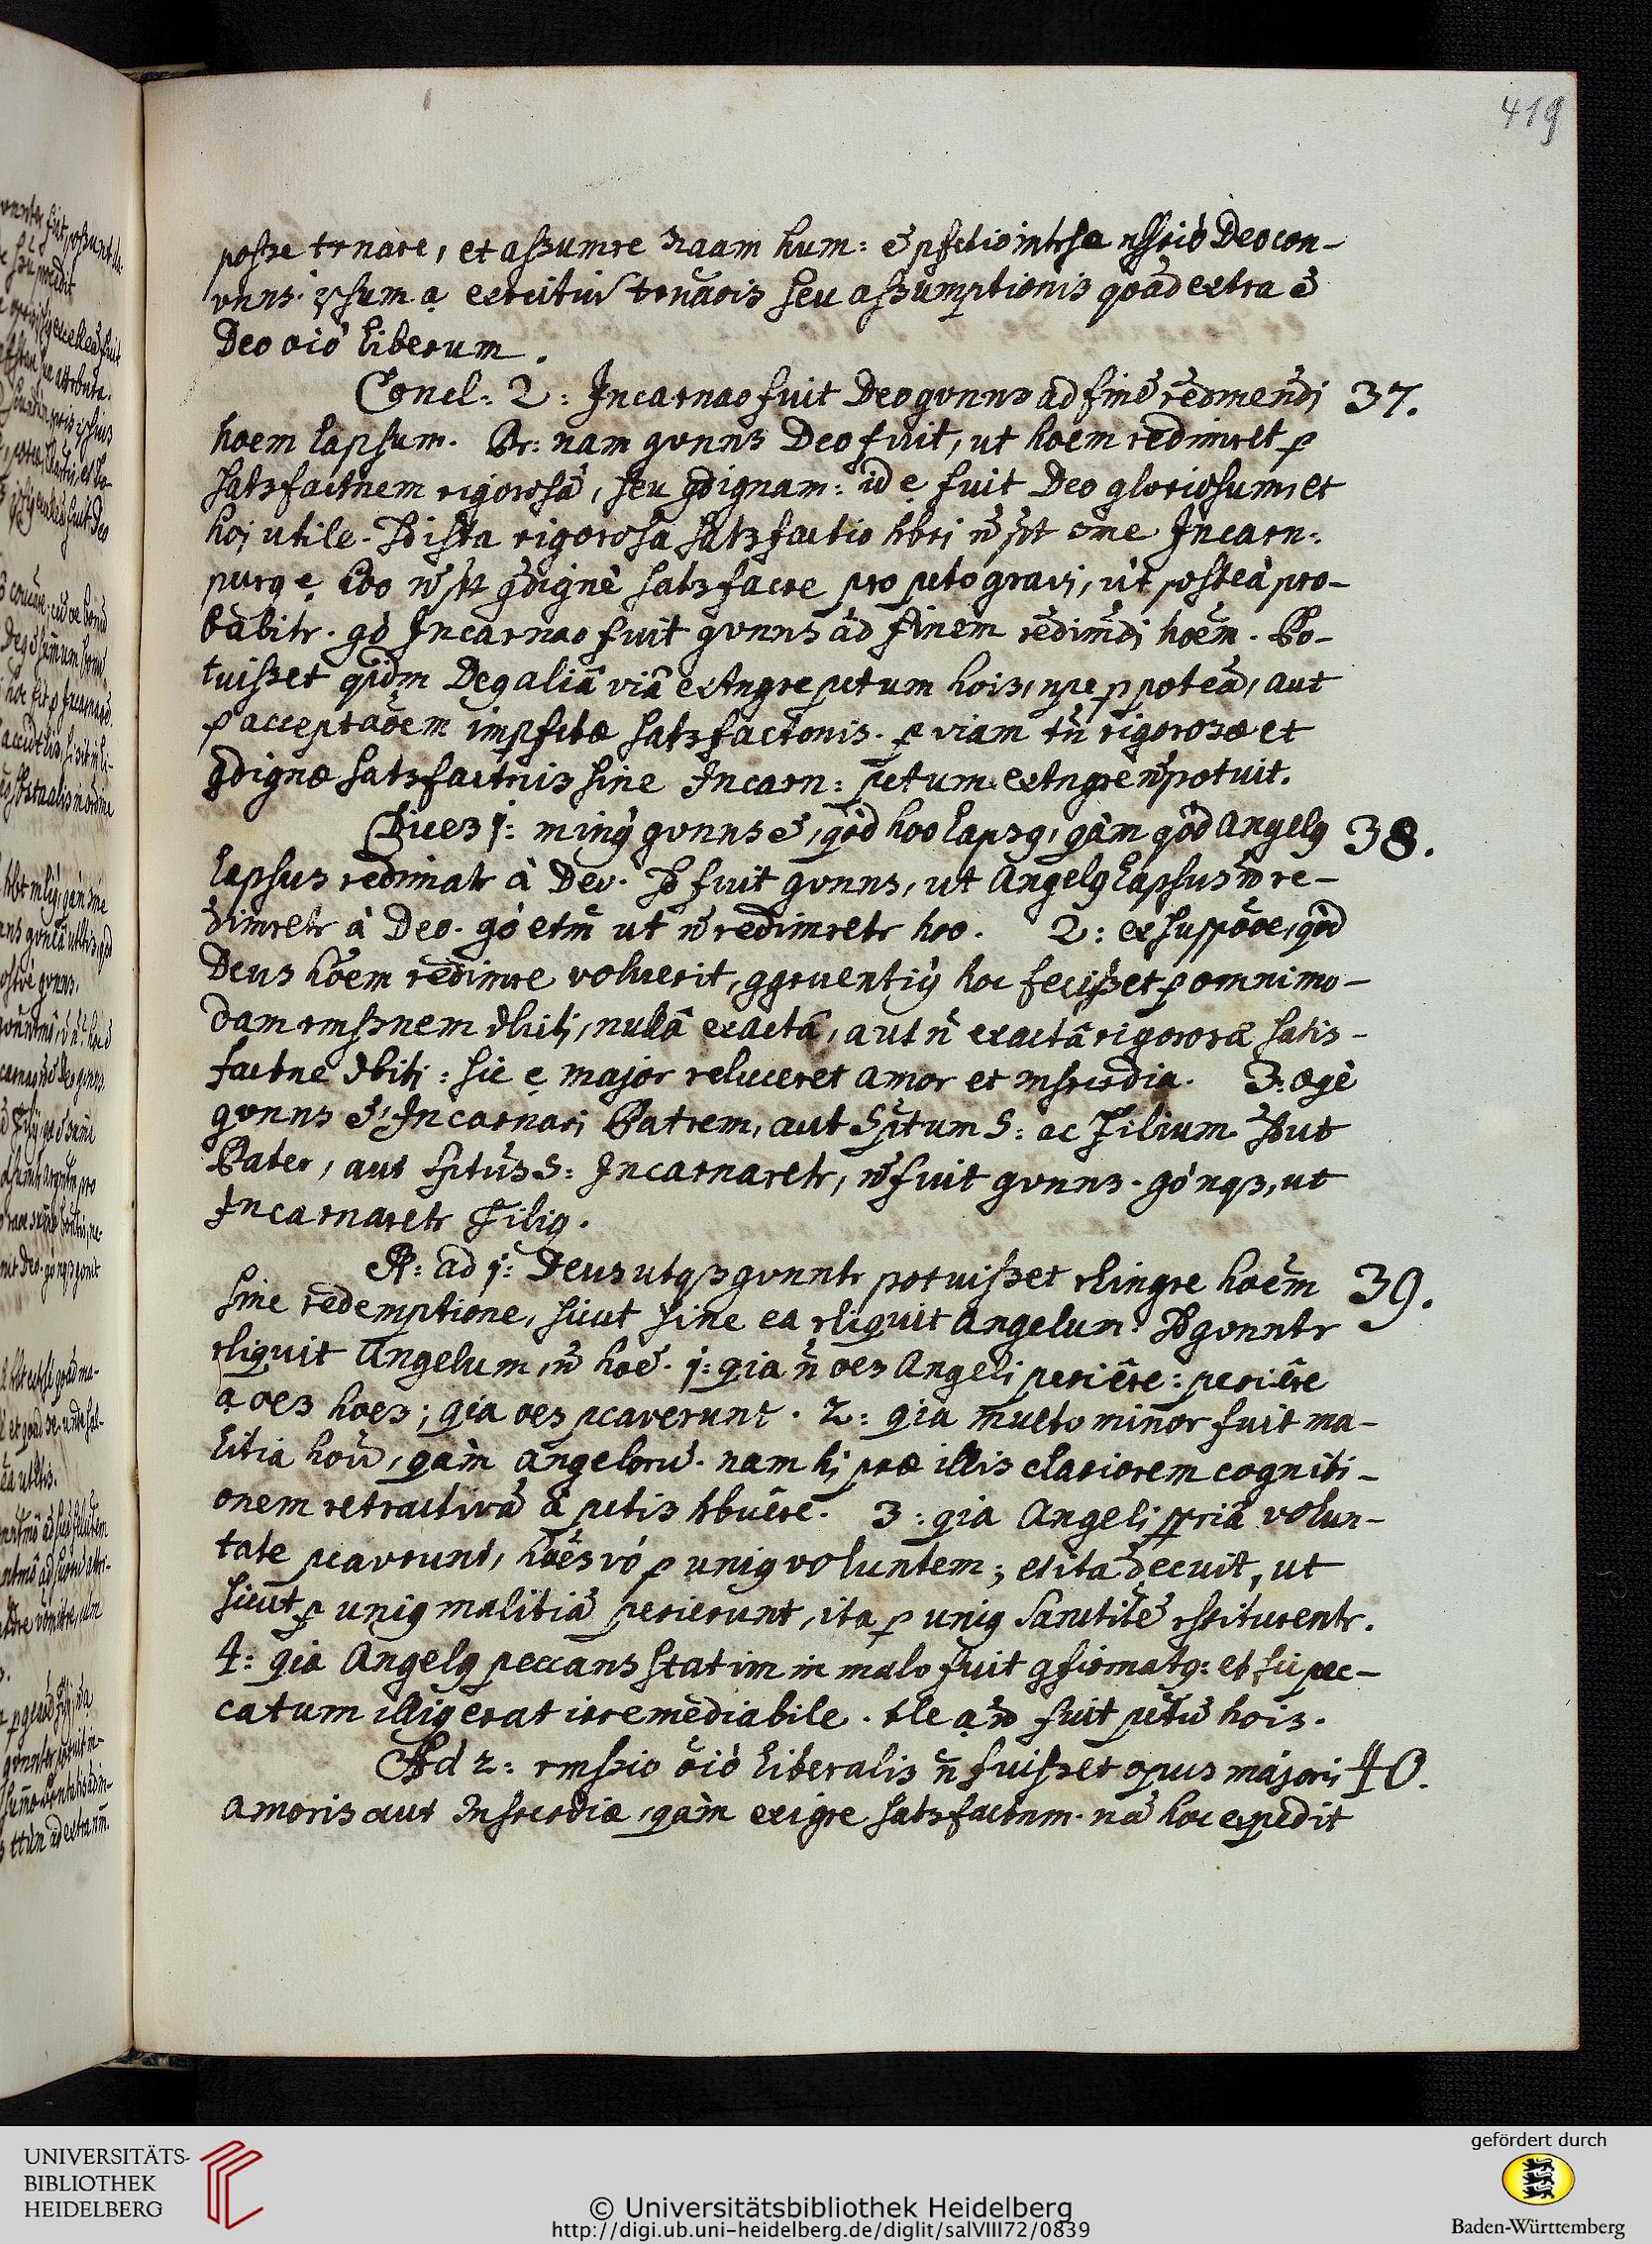 419
posse trnare, et assumre naam hum: ē pfctio intrsa Deo con-
vnns. ipsum a exrcitiū trnaōis seu assumptionis qoad extra ē
Deo oiō liberum.
Concl. 2: Incarnao fuit Deo gvnns ad finē redmendi 37.
hoem lapsum. Pr: nam gvnns Deo fuit, ut hoem redimret p
satsfactnem rigorosā, seu gdignam: id e fuit Deo gloriosum, et
hoi utile. Sd ista rigorosa satsfactio hbri n̄ pt sine Incarn:
purq e hoo n̄ pt gdignè satsfacre pro pcto gravi, ut posteà pro-
babitr. gò Incarnao fuit gvnns ad finem redimdi hoēm. Po-
tuisset qidm Deq aliâ viâ extngre pctum hois, npe p poteā, aut
p acceptaōem impfctæ satsfactonis. p viam tn̄ rigorosæ et
gdignæ satsfactnis sine Incarn: pctum extngre n̄ potuit.
Dices 1: minq gvnns ē, qòd hoo lapsq, qàm qòd Angelq 38.
lapsus redimatr à Deo. Sd fuit gvnns, ut Angelq lapsus n̄ re-
dimretr à Deo. gò etm̄ ut n̄ redimretr hoo. 2: ex suppōoe, qòd
Deus hōem redimre voluerit, ggruentiq hoc fecisset p omnimo-
dam rmssnem dbiti, nullâ exactâ, aut n̄ exactâ rigorosâ satis-
factne dbiti: sic e major reluceret amor et msrcrdia. 3: æqè
gvnns ē Incarnari Patrem, aut Spitum S: ac Filium. Sd ut
Pater, aut spitus S: Incarnaretr, n̄ fuit gvnns. gò nqs, ut
Incarnaretr Filiq.
R: ad 1: Deus utqs gvnntr potuisset rlingre hoēm 39.
sine redemptione, sicut sine ea rliquit Angelum. Sd gvnntr
rliquit Angelum, n̄ hoē. 1: qia n̄ oes Angeli periêre: periêre
a oes hoes; qia oes pcaverunt. 2: qia multo minor fuit ma-
litia hoiū, qàm angelorū. nam hi præ illis clariorem cogniti-
onem retractivā à pctis hbuêre. 3: qia Angeli ppriâ volun-
tate pcavrunt, hoēs vò p uniq voluntem; et ita decuit, ut
sicut p uniq malitiā perierunt, ita p uniq sanctitē rstiturentr.
4: qia Angelq peccans statim in malo fuit gfirmatq: et sic pec-
catum illiq erat irremediabile. tle a n̄ fuit pctū hois.
Ad 2: rmssio oiò liberalis n̄ fuisset opus majoris 40.
amoris aut msrcrdiæ, qàm exigre satsfactnm. nā hoc expedit
UNIVERSITÄTS-
BIBLIOTHEK
HEIDELBERG
© Universitätsbibliothek Heidelberg
http://digi.ub.uni-heidelberg.de/diglit/salVIII72/0839
gefördert durch
Baden-Württemberg